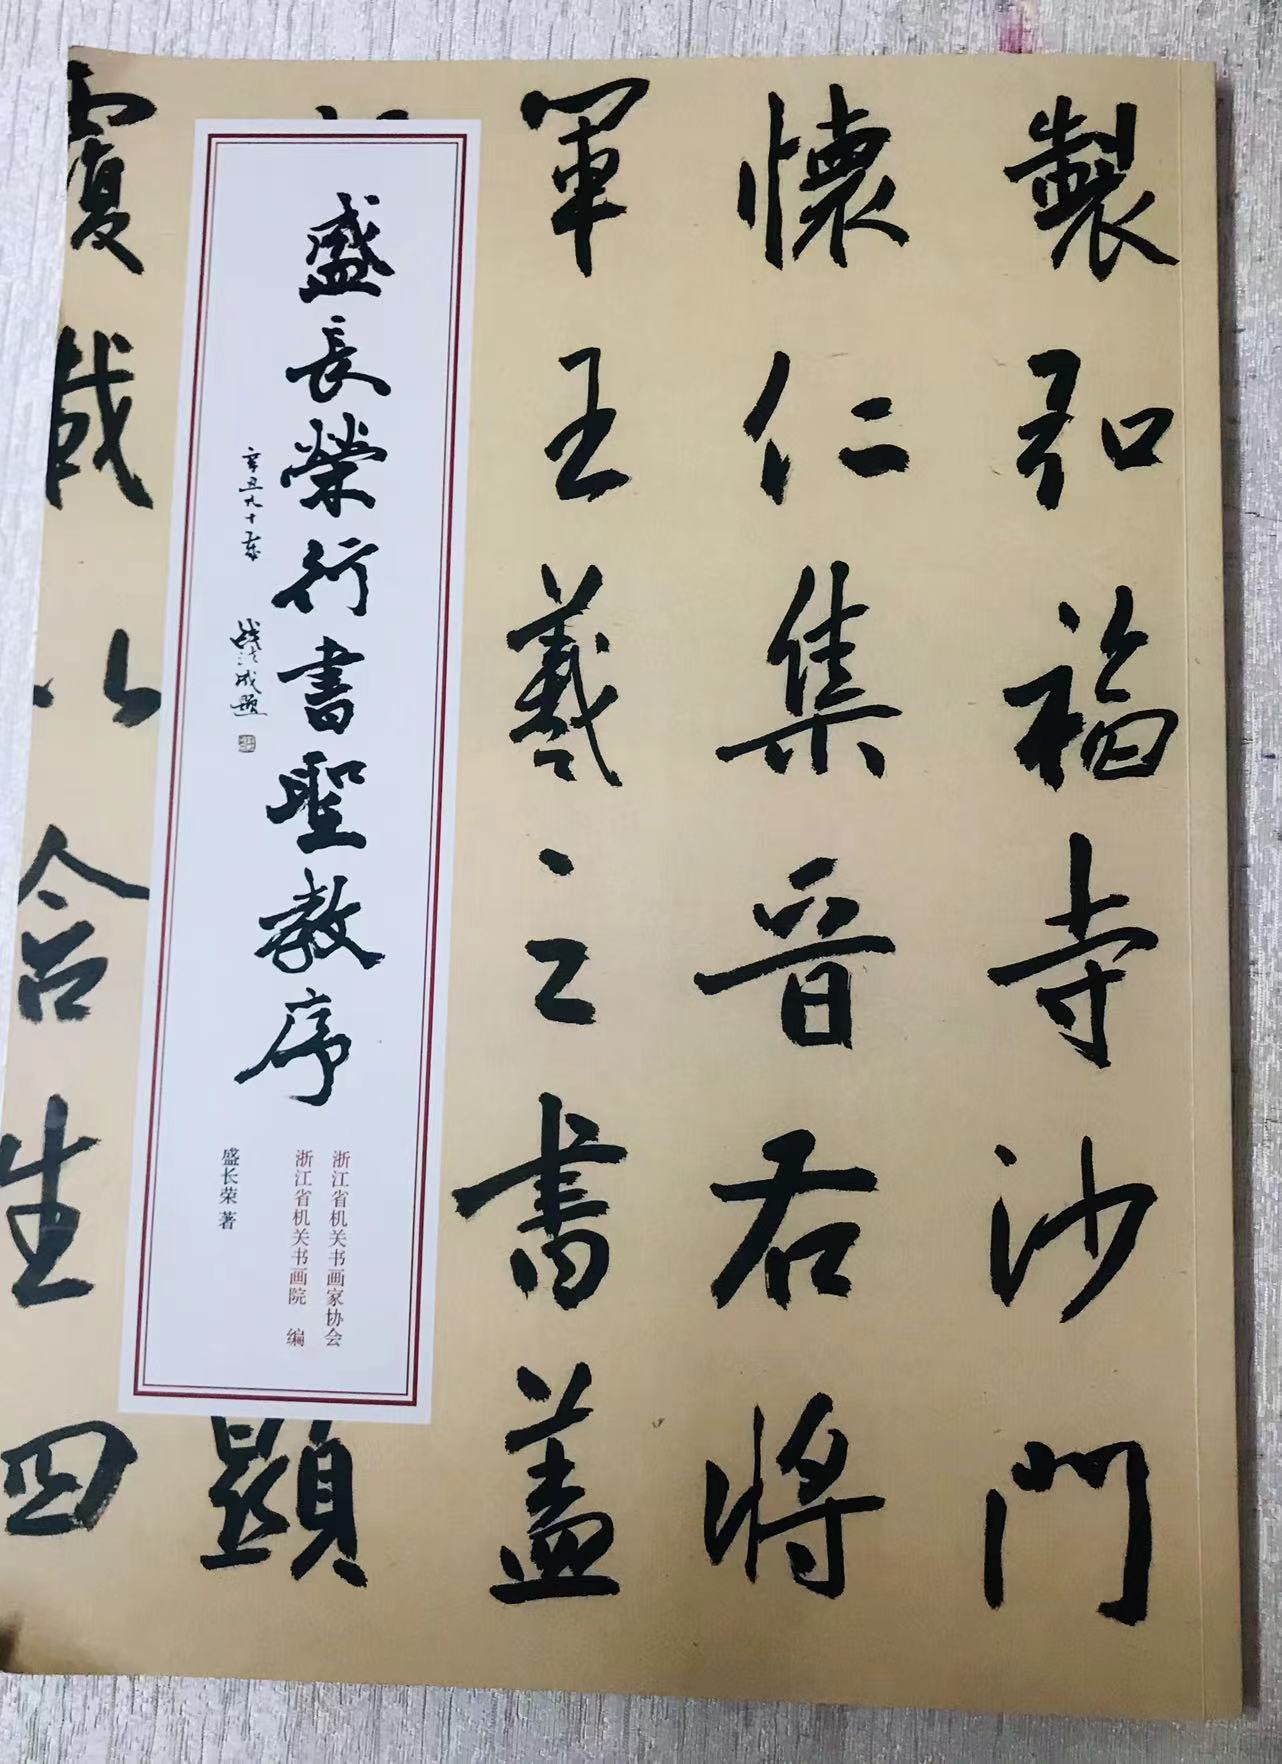 製弘福寺沙門
懷仁集晉右將
軍王羲之書蓋
顯
覆載以含生四
盛長榮行書聖教序
辛丑九十叟
戲法成題
浙江省机关书画家协会
浙江省机关书画院 编
盛长荣 著